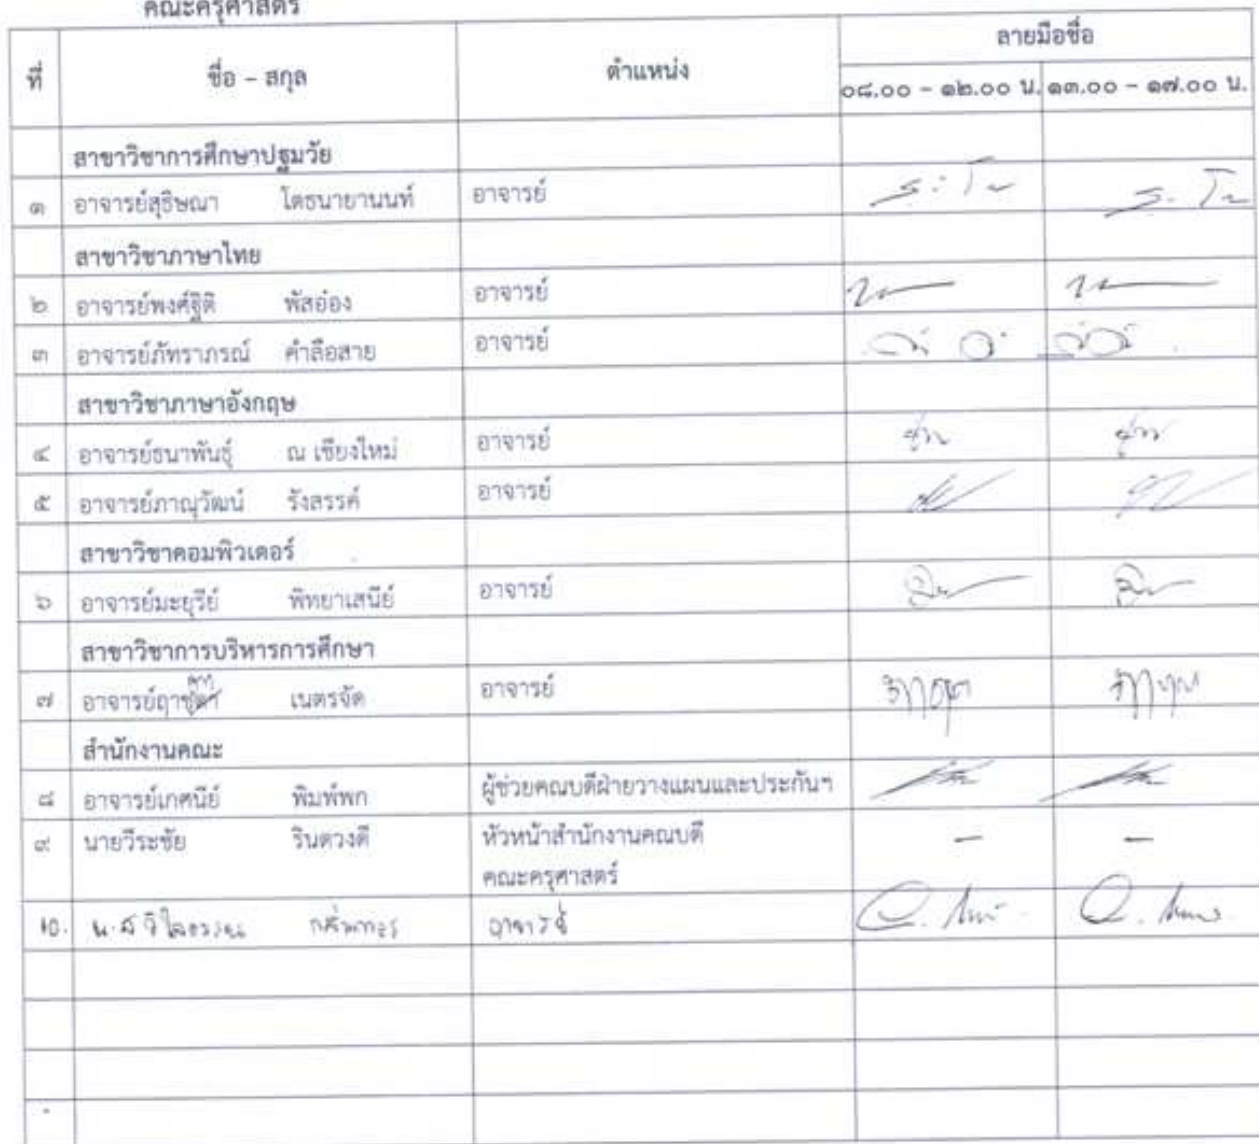 คณะครุศาสตร์
ที่ ชื่อ - สกุล ตำแหน่ง ลายมือชื่อ
๐๘.๐๐ - ๑๒.๐๐ น. ๑๓.๐๐ - ๑๗.๐๐ น.
สาขาวิชาการศึกษาปฐมวัย
๑ อาจารย์สุธิษณา โตธนายานนท์ อาจารย์
สาขาวิชาภาษาไทย
๒ อาจารย์พงศ์ฐิติ พัสอ๋อง อาจารย์
๓ อาจารย์ภัทราภรณ์ คำลือสาย อาจารย์
สาขาวิชาภาษาอังกฤษ
๔ อาจารย์ธนาพันธุ์ ณ เชียงใหม่ อาจารย์
๕ อาจารย์ภาณุวัฒน์ รังสรรค์ อาจารย์
สาขาวิชาคอมพิวเตอร์
๖ อาจารย์มะยุรีย์ พิทยาเสนีย์ อาจารย์
สาขาวิชาการบริหารการศึกษา
๗ เนตรจัด อาจารย์
สำนักงานคณะ
๘ อาจารย์เกศนีย์ พิมพ์พก ผู้ช่วยคณบดีฝ่ายวางแผนและประกันฯ
๙ นายวีระชัย รินดวงดี หัวหน้าสำนักงานคณบดี - -
คณะครุศาสตร์
10. น.ส อาจารย์